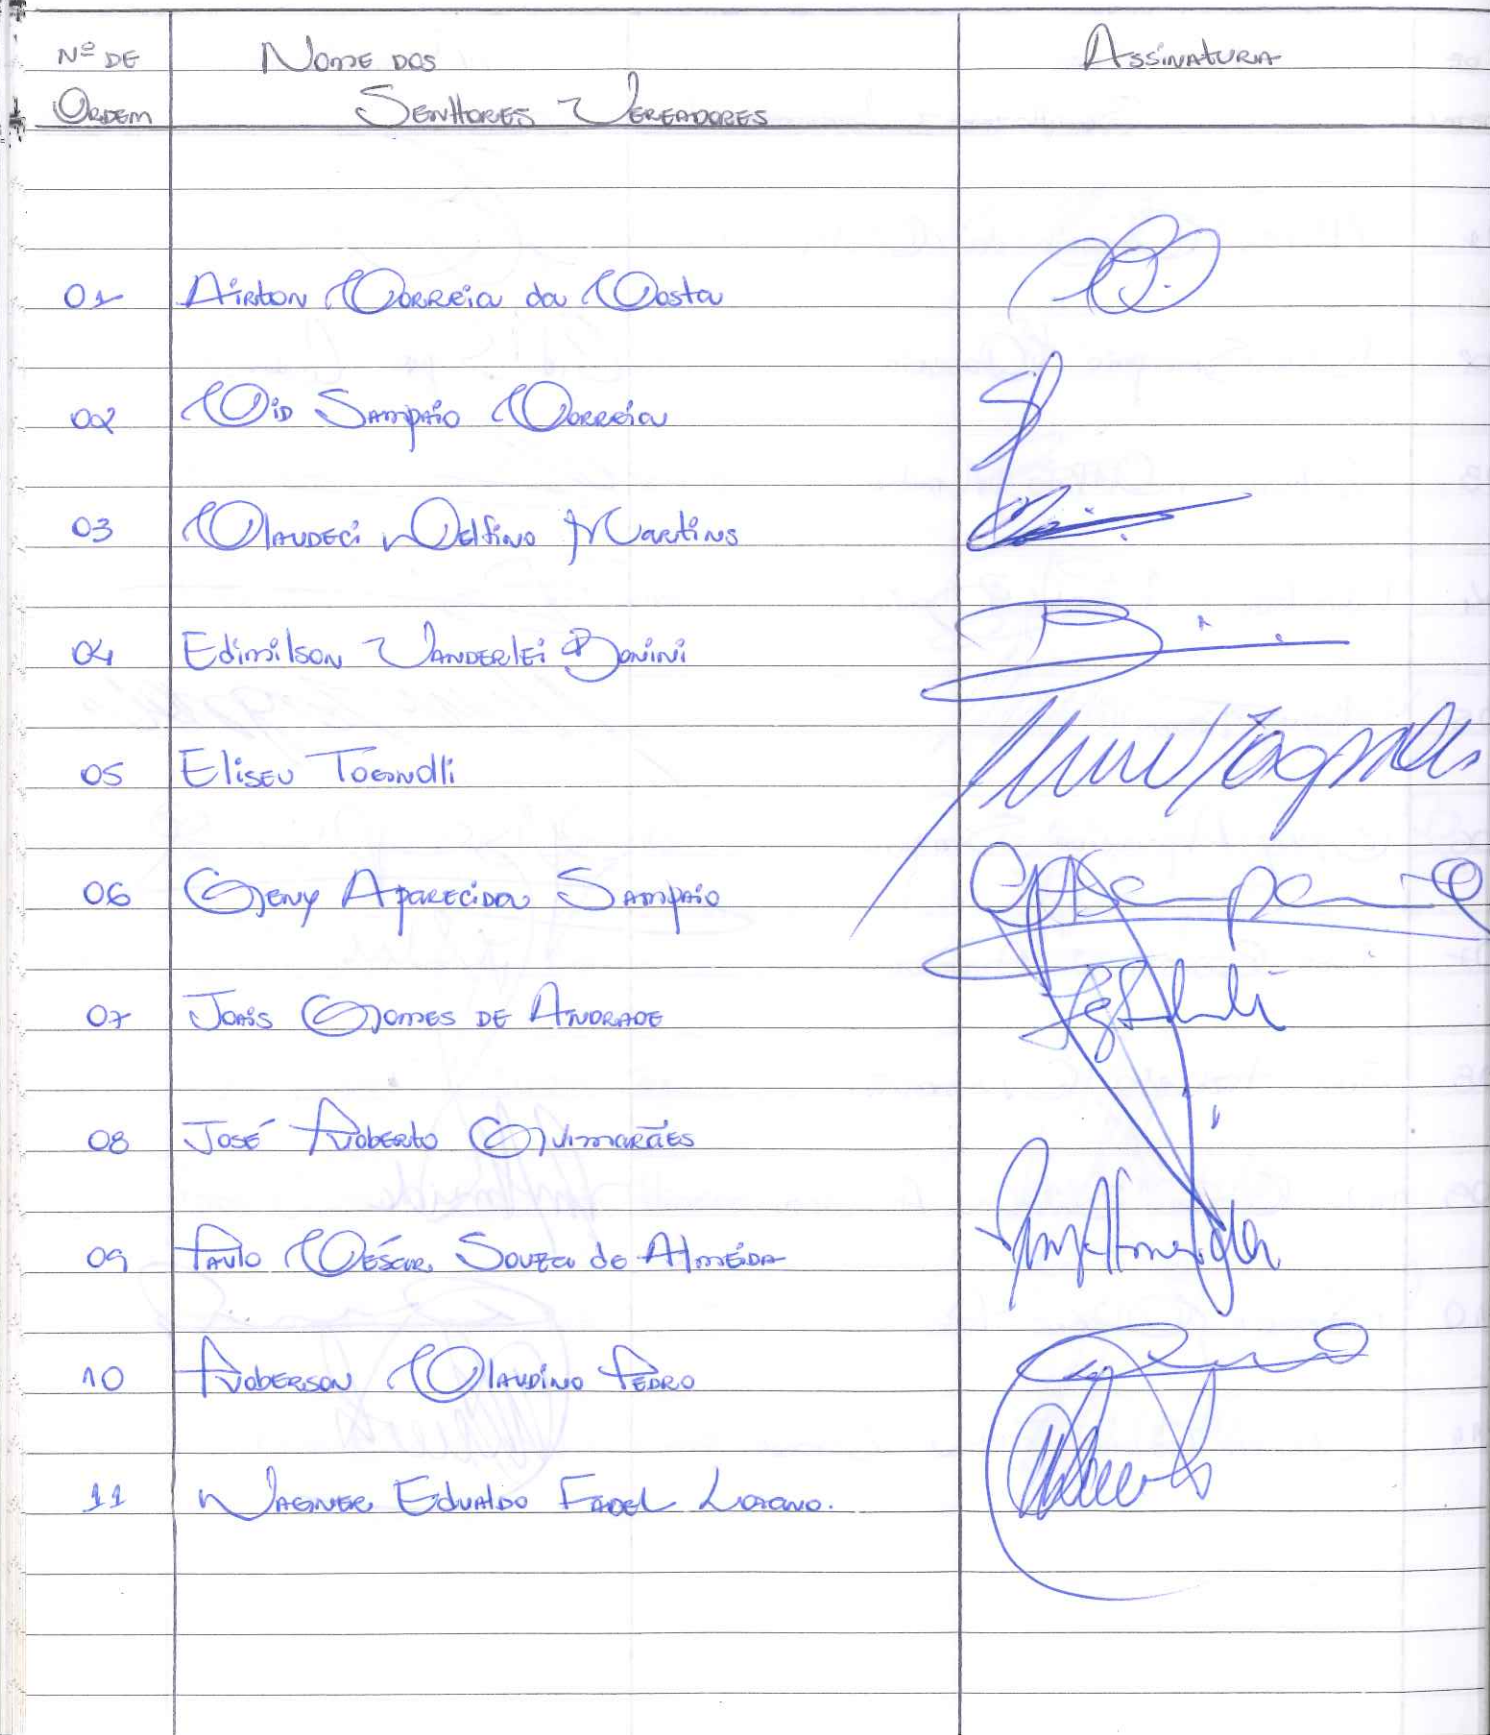 Nº DE Nome dos Assinatura
Ordem Senhores Vereadores
01 Airton Correia da Costa
02 Cid Sampaio Correia
03 Claudeci Delfino Martins
04 Edimilson Vanderlei Bonini
05 Eliseu
06 Geny Aparecida Sampaio
07 Joais Gomes de Andrade
08 José Roberto Guimarães
09 Paulo César Souza de Almeida
10 Roberson Claudino Pedro
11 Wagner Edualdo Fadel Lozano.